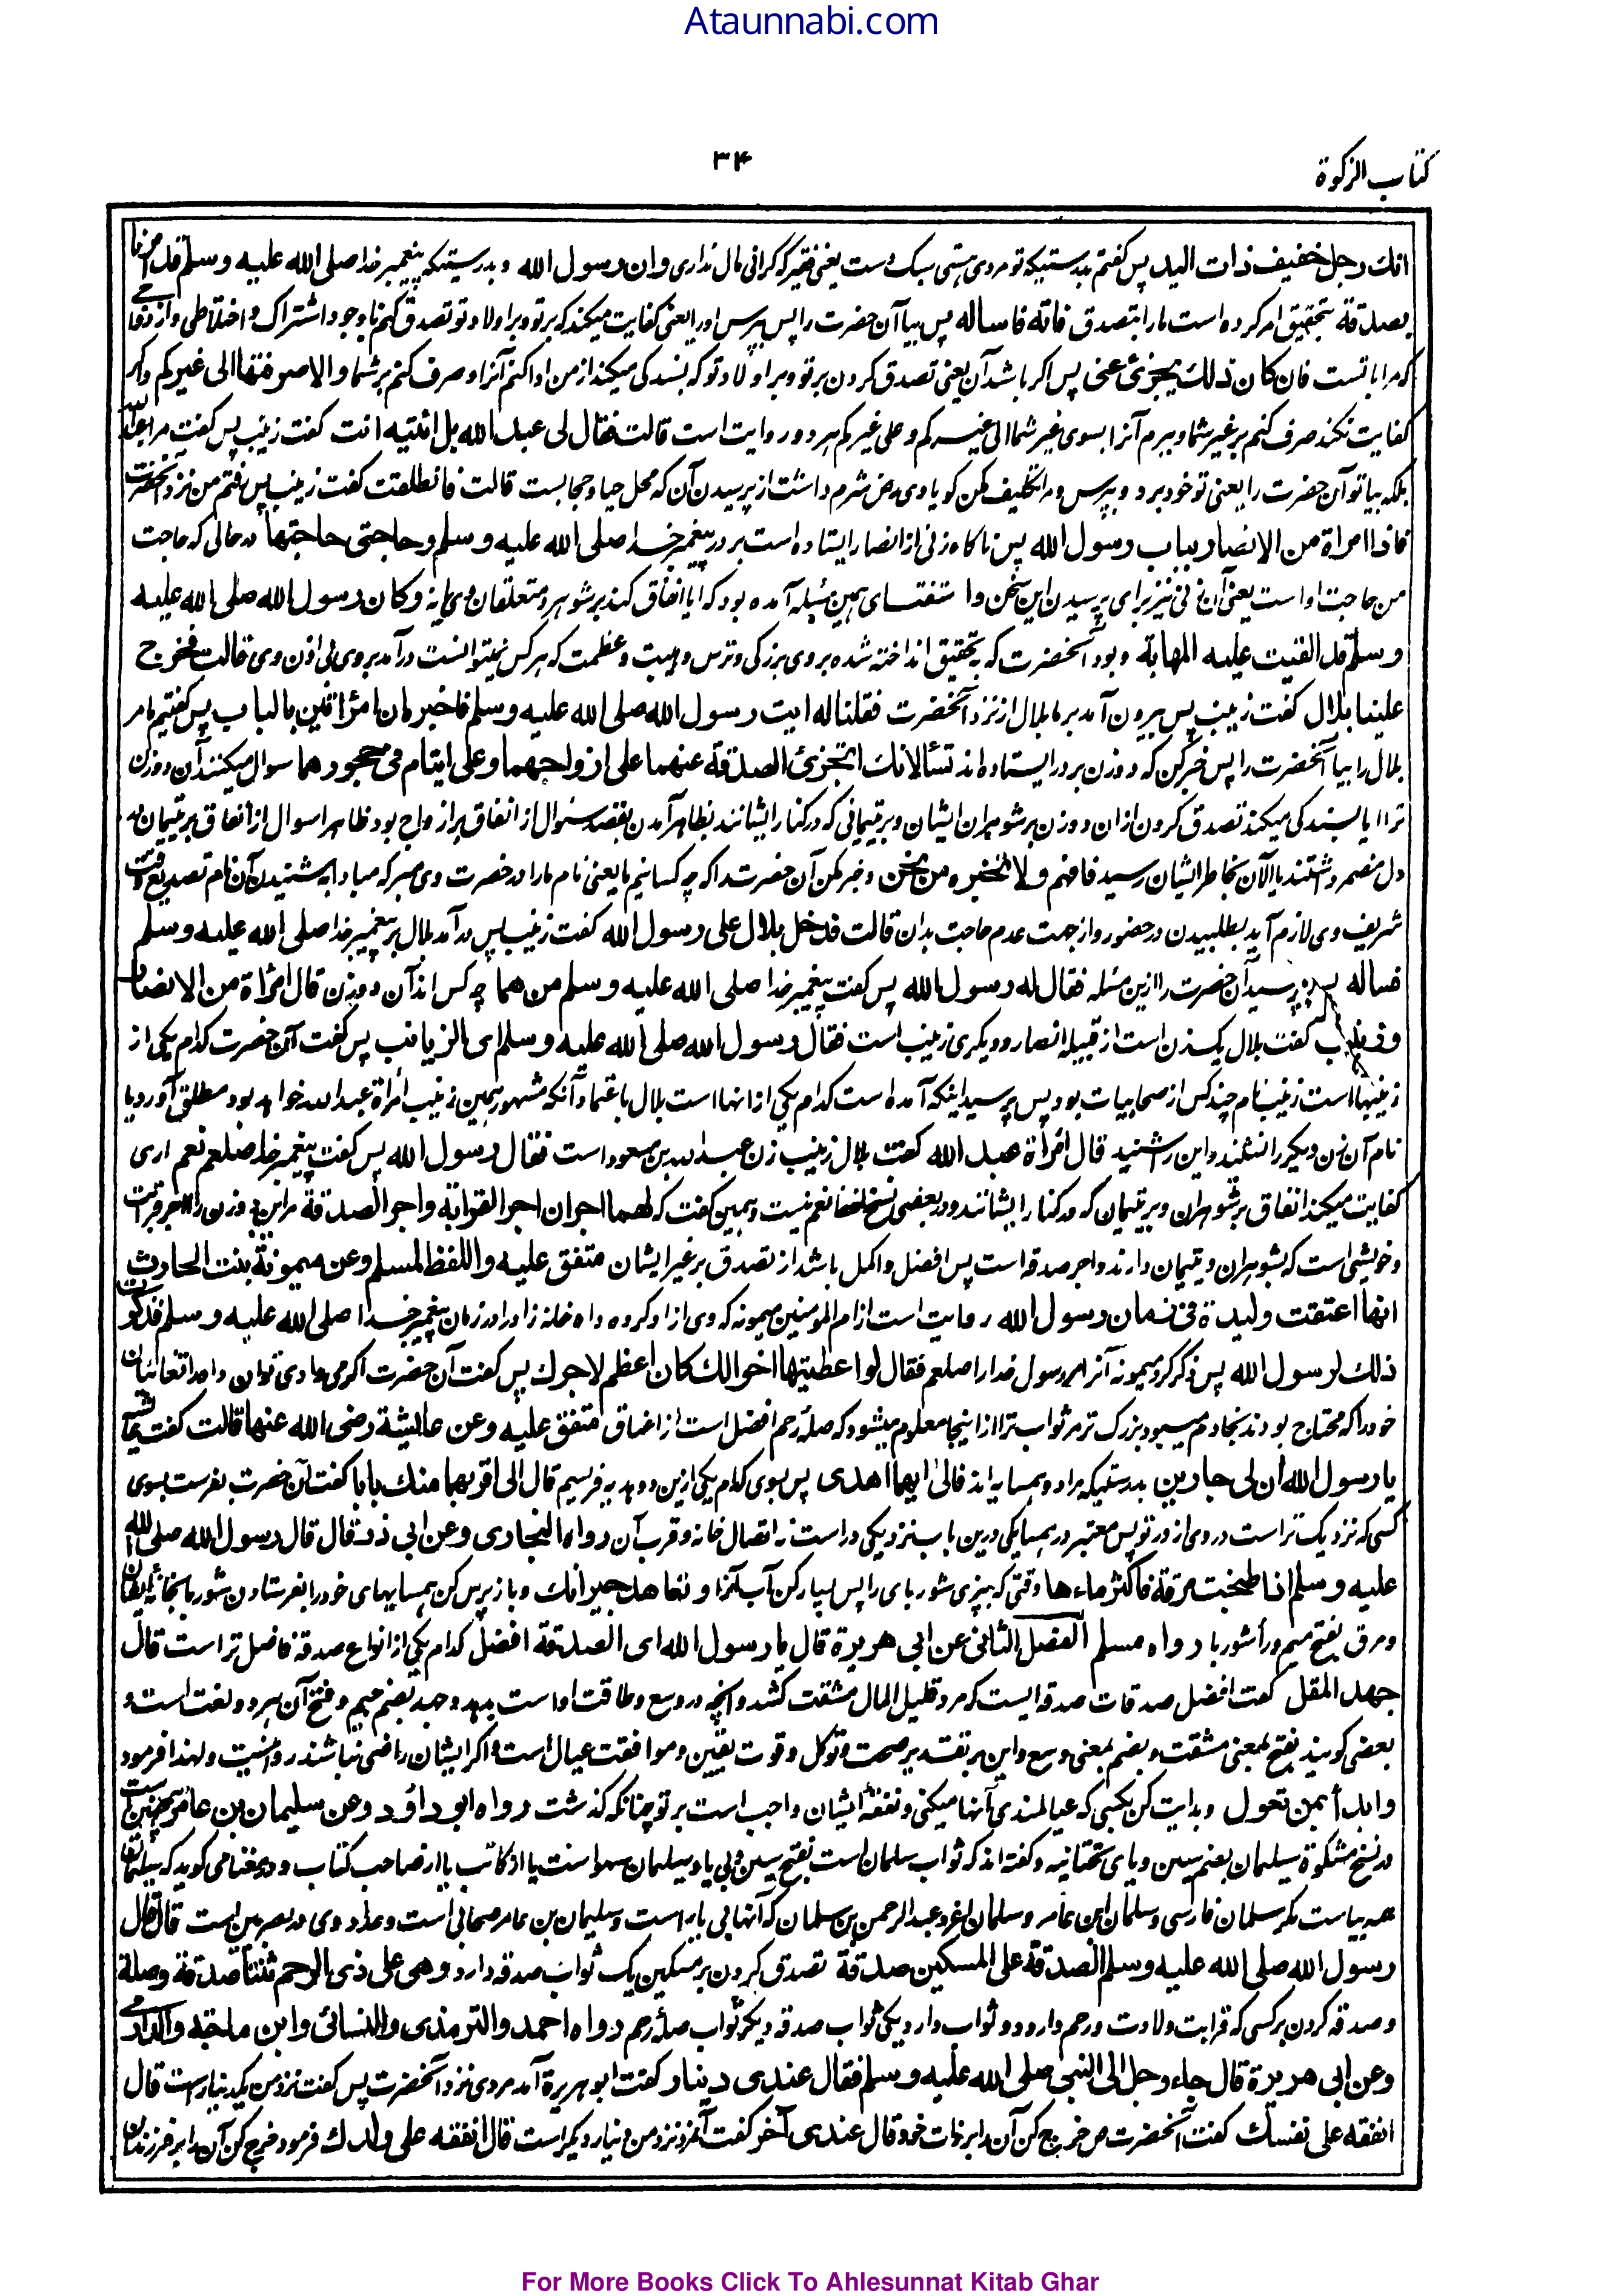 Ataunnabi.com
۳۴
کتاب الزکوة
انك رجل خفیف ذات الید پس گفتم بدرستیکه تو مردی هستی سبک دست یعنی فقیر که گرانی مال نداری وان رسول الله و بدرستیکه پیغمبر خدا صلی الله علیه وسلم قد امرنا
بصدقة بتحقیق امر کرده است مارا بتصدق فاته فاساله پس بیا آن حضرت را پس بپرس اورا یعنی کفایت میکند که بر تو و بر اولاد تو تصدق کنم با وجود اشتراک و اختلاطی و ارتفاقی
که مرا با تست فان کان ذلك یجزئ عنی پس اگر باشد آن یعنی تصدق کردن بر تو و بر اولاد تو که بسندگی میکند از من ادا کنم آنرا و صرف کنم بر شما والا صرفتها الی غیرکم واگر
کفایت نکند صرف کنم بر غیر شما و ببرم آنرا بسوی غیر شما الی غیرکم و علی غیرکم هر دو روایت است قالت فقال لی عبد الله بل ائتیه انت گفت زینب پس گفت مرا عبد الله
بلکه بیا تو آن حضرت را یعنی تو خود برو و بپرس و مرا تکلیف مکن گویا وی رض شرم داشت از پرسیدن آن که محل حیا و حجابست قالت فانطلقت گفت زینب پس رفتم من نزد آنحضرت
فاذا امراة من الانصار بباب رسول الله پس ناگاه زنی از انصار ایستاده است بر در پیغمبر خدا صلی الله علیه وسلم وحاجتی حاجتها در حالی که حاجت
من حاجت او است یعنی آن زنی نیز برای پرسیدن این سخن و استفتای همین مسئله آمده بود که ایا انفاق کند بر شوهر و متعلقان وی یا نه وکان رسول الله صلی الله علیه
وسلم قد القیت علیه المهابة و بود آنحضرت که بتحقیق انداخته شده بر وی بزرگی و ترس و هیبت و عظمت که هر کس نمیتوانست درآمد بر وی بی اذن وی قالت فخرج
علینا بلال گفت زینب پس بیرون آمد بر ما بلال از نزد آنحضرت فقلنا له ایت رسول الله صلی الله علیه وسلم فاخبره ان امراتین بالباب پس گفتیم ما مر
بلال را بیا آنحضرت را پس خبر کن که دو زن بر در ایستاده اند تسألانك اتجزئ الصدقة عنهما علی ازواجهما وعلی ایتام فی حجورهما سوال میکنند آن دو زن
ترا ایا بسندگی میکند تصدق کردن ازان دو زن بر شوهران ایشان و بر یتیمانی که در کنار ایشانند بظاهر آمدن بقصد سوال از انفاق بر ازواج بود ظاهرا سوال از انفاق بر یتیمان در
دل مضمر داشتند یا الآن بخاطر ایشان رسید فافهم ولا تخبره من نحن و خبر مکن آن حضرت را که چه کسانیم ما یعنی نام مارا در حضرت وی مبر که مبادا بشنیدن آن نام تصدیع وقت
شریف وی لازم آید بطلبیدن در حضور و از جهت عدم حاجت بدان قالت فدخل بلال علی رسول الله گفت زینب پس درآمد بلال بر پیغمبر خدا صلی الله علیه وسلم
فساله پس پرسید آن حضرت را ازین مسئله فقال له رسول الله پس گفت پیغمبر خدا صلی الله علیه وسلم من هما چه کس اند آن دو زن قال امرأة من الانصار
وزینب گفت بلال یک زن است از قبیله انصار و دیگری زینب است فقال رسول الله صلی الله علیه وسلم ای الزیانب پس گفت آن حضرت کدام یکی از
زینبها است زینب نام چند کس از صحابیات بود پس پرسید اینکه آمده است کدام یکی ازانها است بلال باعتماد آنکه مشهور همین زینب امرأة عبد الله خواهد بود مطلق آورد یا
نام آن زن دیگر را نشنید و این را شنید قال امرأة عبد الله گفت بلال زینب زن عبد الله بن مسعود است فقال رسول الله پس گفت پیغمبر خدا صلعم نعم اری
کفایت میکند انفاق بر شوهران و بر یتیمان که در کنار ایشانند و در بعضی نسخ لفظ نعم نیست و همین گفت که لهما اجران اجر القرابة واجر الصدقة مر این دو زن را اجر قرابت
و خویشی است که بشوهران و یتیمان دارند و اجر صدقه است پس افضل و اکمل باشد از تصدق بر غیر ایشان متفق علیه واللفظ لمسلم وعن میمونة بنت الحارث
انها اعتقت ولیدة فی زمان رسول الله روایت است از ام المومنین میمونه که وی ازاد کرد داه خانه زاد را در زمان پیغمبر خدا صلی الله علیه وسلم فذکرت
ذلك لرسول الله پس ذکر کرد میمونه آنرا مر رسول خدا را صلعم فقال لو اعطیتها اخوالك کان اعظم لاجرك پس گفت آن حضرت اگر می دادی تو آن داه را خالان
خود را که محتاج بودند بخادم میبود بزرگ تر مر ثواب ترا ازینجا معلوم میشود که صلهٔ رحم افضل است از اعتاق متفق علیه وعن عایشة رضی الله عنها قالت گفت عایشه
یا رسول الله ان لی جارین بدرستیکه مرا دو همسایه اند فالی ایهما اهدی پس بسوی کدام یکی ازین دو هدیه فرستم قال الی اقربهما منك بابا گفت آن حضرت بفرست بسوی
کسی که نزدیک تر است در وی از در تو پس معتبر در همسایگی درین باب نزدیکی در است نه اتصال خانه و قرب آن رواه البخاری وعن ابی ذر قال قال رسول الله صلی الله
علیه وسلم اذا طبخت مرقة فاکثر ماءها وقتی که بپزی شوربای را پس بسیار کن آب آنرا وتعاهد جیرانك و باز پرس کن همسایهای خود را بفرستادن شوربا بخانهٔ ایشان
ومرق بفتح میم و را شوربا رواه مسلم الفصل الثانی عن ابی هریرة قال یا رسول الله ای الصدقة افضل کدام یکی از انواع صدقه فاضل تر است قال
جهد المقل گفت افضل صدقات صدقه ایست که مرد قلیل المال مشقت کشد و آنچه در وسع و طاقت او است بدهد و جهد بضم جیم و فتح آن هر دو لغت است و
بعضی گویند بفتح بمعنی مشقت و بضم بمعنی وسع و این بر تقدیر صحت و توکل و قوت یقین و موافقت عیال است و اگر ایشان راضی نباشند روا نیست و لهذا فرمود
وابدأ بمن تعول و بدایت کن بکسی که عیالمندی آنها میکنی و نفقهٔ ایشان واجب است بر تو چنانکه گذشت رواه ابو داؤد وعن سلیمان بن عامر همچنین است
در نسخ مشکوة سلیمان بضم سین و یای تحتانیه و گفته اند که صواب سلمان است بفتح سین و بی یا و سلیمان سهو است یا از کاتب یا از صاحب کتاب و در مغنی می گوید که سلیمان
همه بیاست مگر سلمان فارسی و سلمان ابن عامر و سلمان اغر و عبد الرحمن بن سلمان که آنها بی یا است و سلیمان بن عامر صحابی است و عداد وی در بصریین است قال قال
رسول الله صلی الله علیه وسلم الصدقة علی المسکین صدقة تصدق کردن بر مسکین یک ثواب صدقه دارد وهی علی ذی الرحم ثنتان صدقة وصلة
و صدقه کردن بر کسی که قرابت ولادت و رحم دارد دو ثواب دارد یکی ثواب صدقه دیگر ثواب صلهٔ رحم رواه احمد والترمذی والنسائی وابن ماجة والدارمی
وعن ابی هریرة قال جاء رجل الی النبی صلی الله علیه وسلم فقال عندی دینار گفت ابو هریرة آمد مردی نزد آنحضرت پس گفت نزد من یک دینار است قال
انفقه علی نفسك گفت آنحضرت ص خرج کن آن را بر ذات خود قال عندی آخر گفت آنمرد نزد من دینار دیگر است قال انفقه علی ولدك فرمود خرج کن آن را بر فرزندان
For More Books Click To Ahlesunnat Kitab Ghar